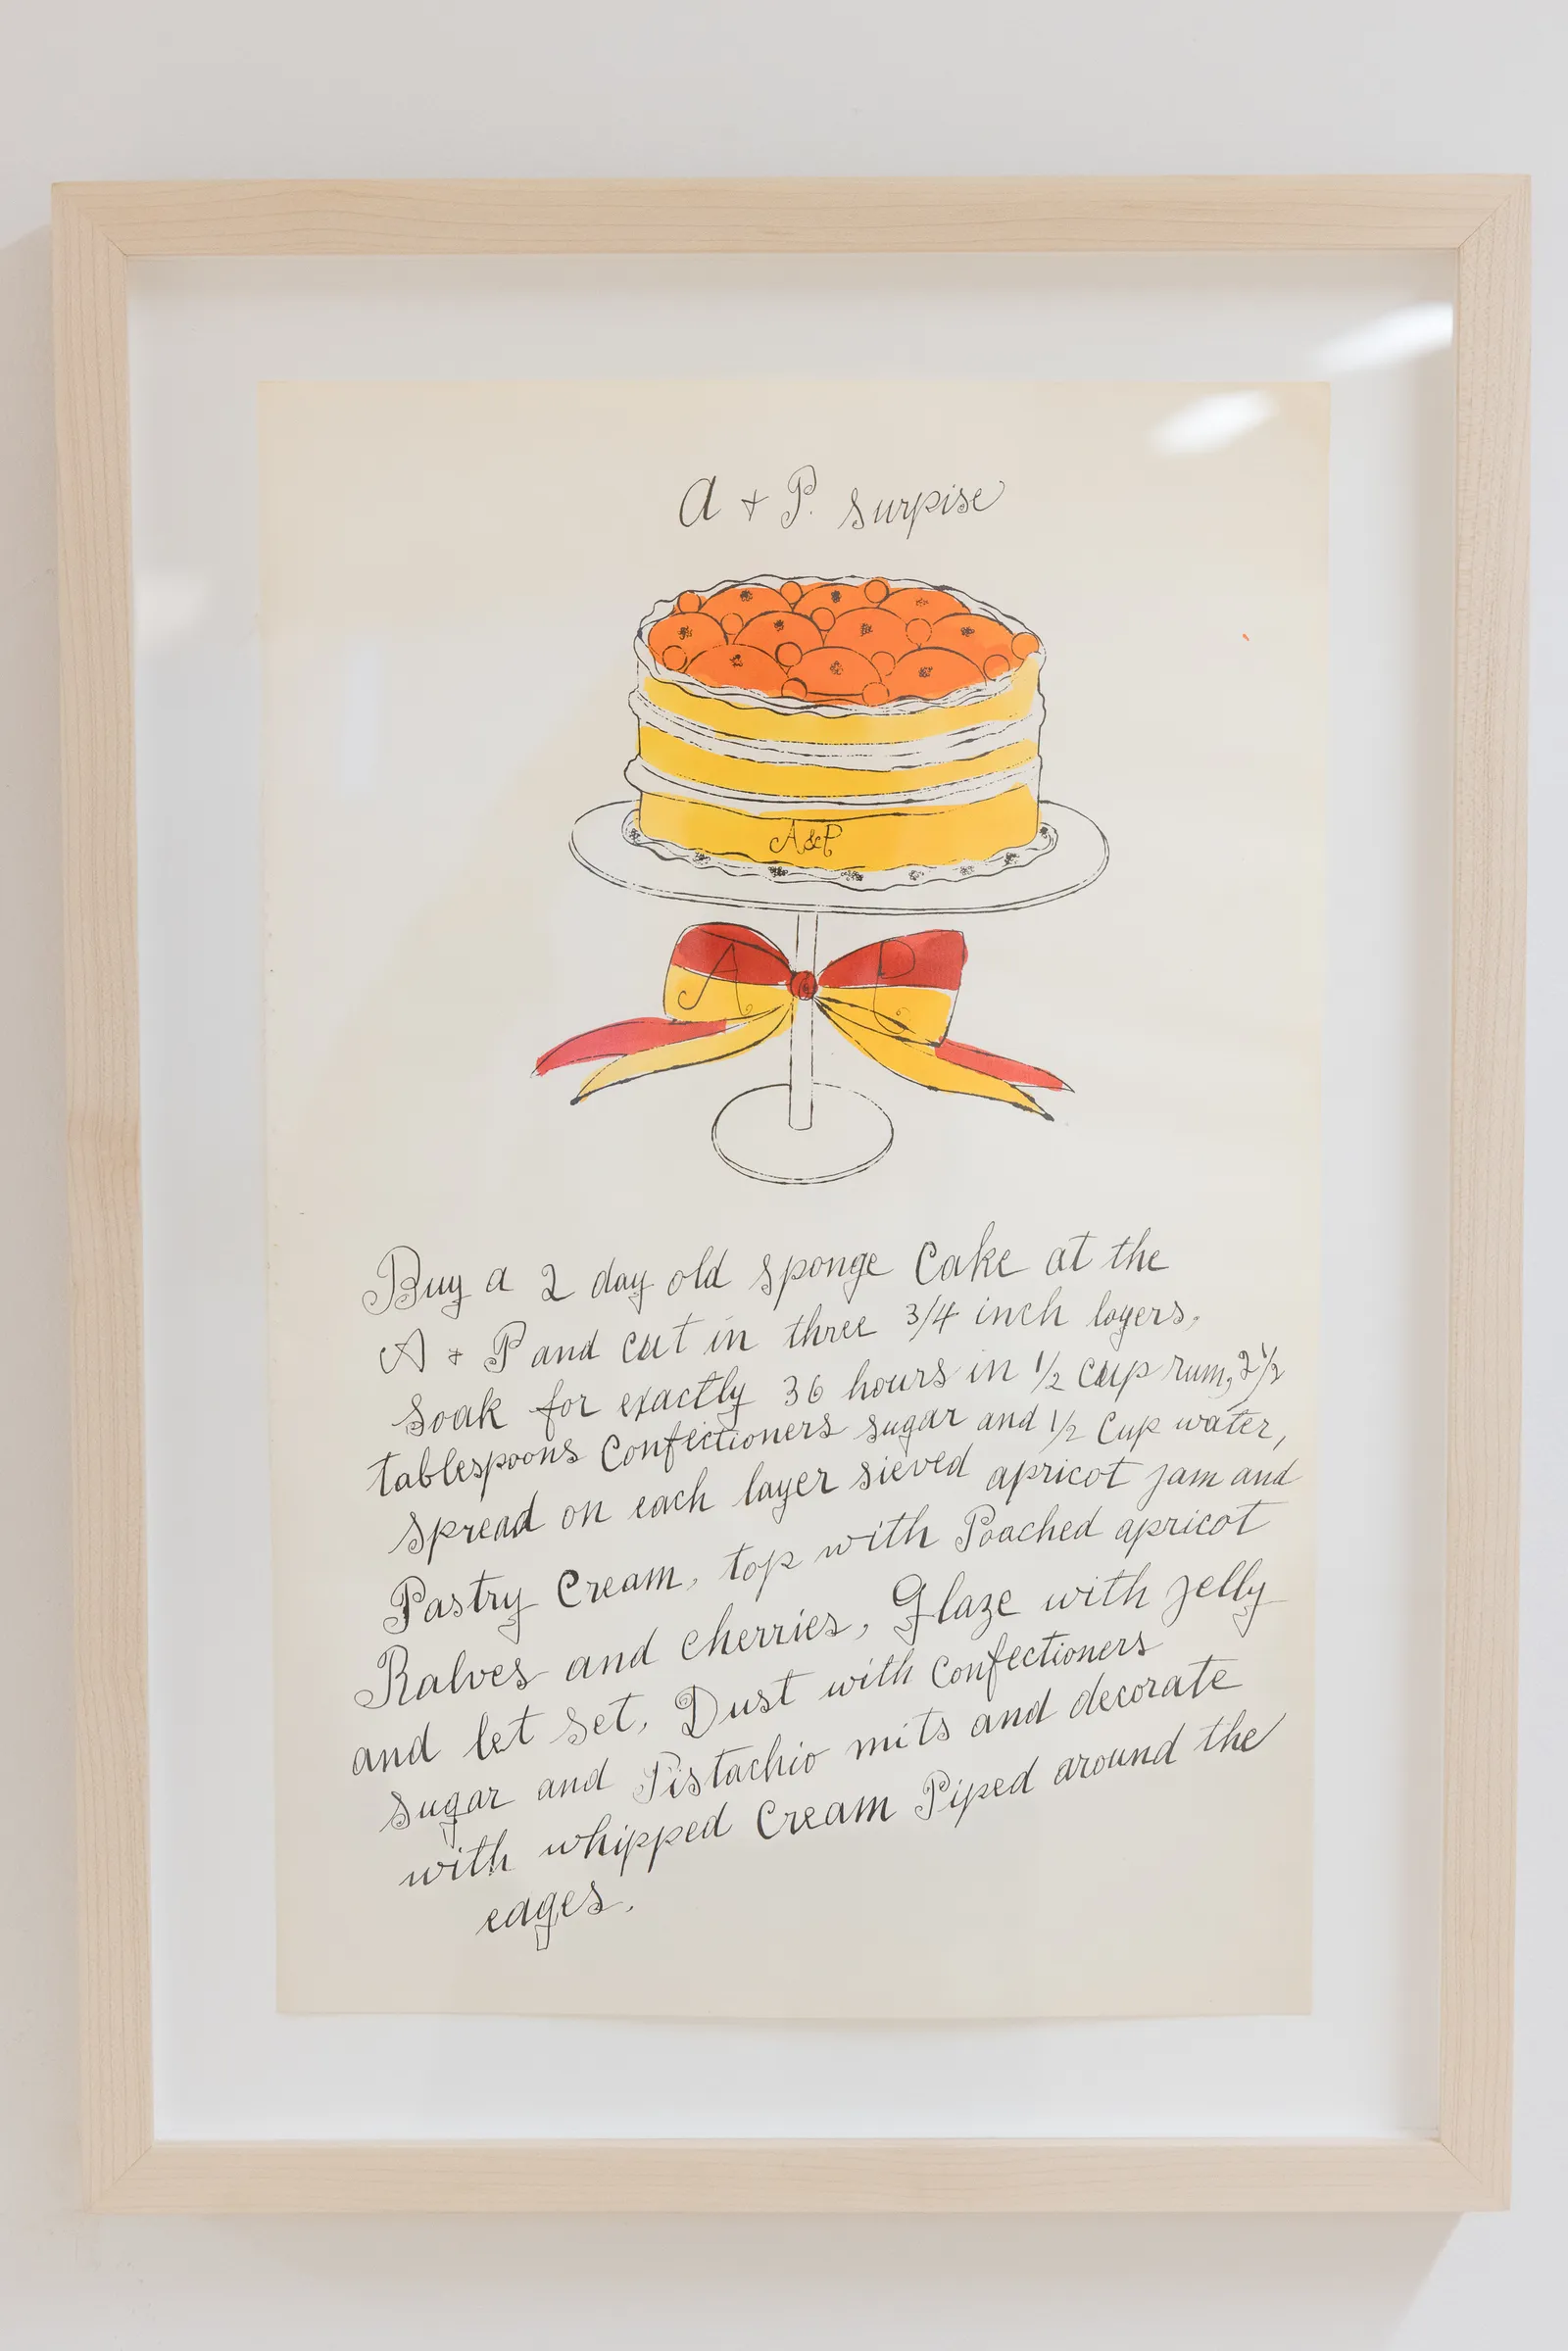 A + P. Surpise
A&P
A P
Buy a 2 day old sponge Cake at the
A + P and cut in three 3/4 inch layers,
Soak for exactly 36 hours in 1/2 cup rum, 2 1/2
tablespoons Confectioners sugar and 1/2 Cup water,
Spread on each layer sieved apricot jam and
Pastry Cream, top with Poached apricot
Ralves and cherries, Glaze with jelly
and let set, Dust with Confectioners
Sugar and Pistachio mits and decorate
with whipped Cream Piped around the
edges.